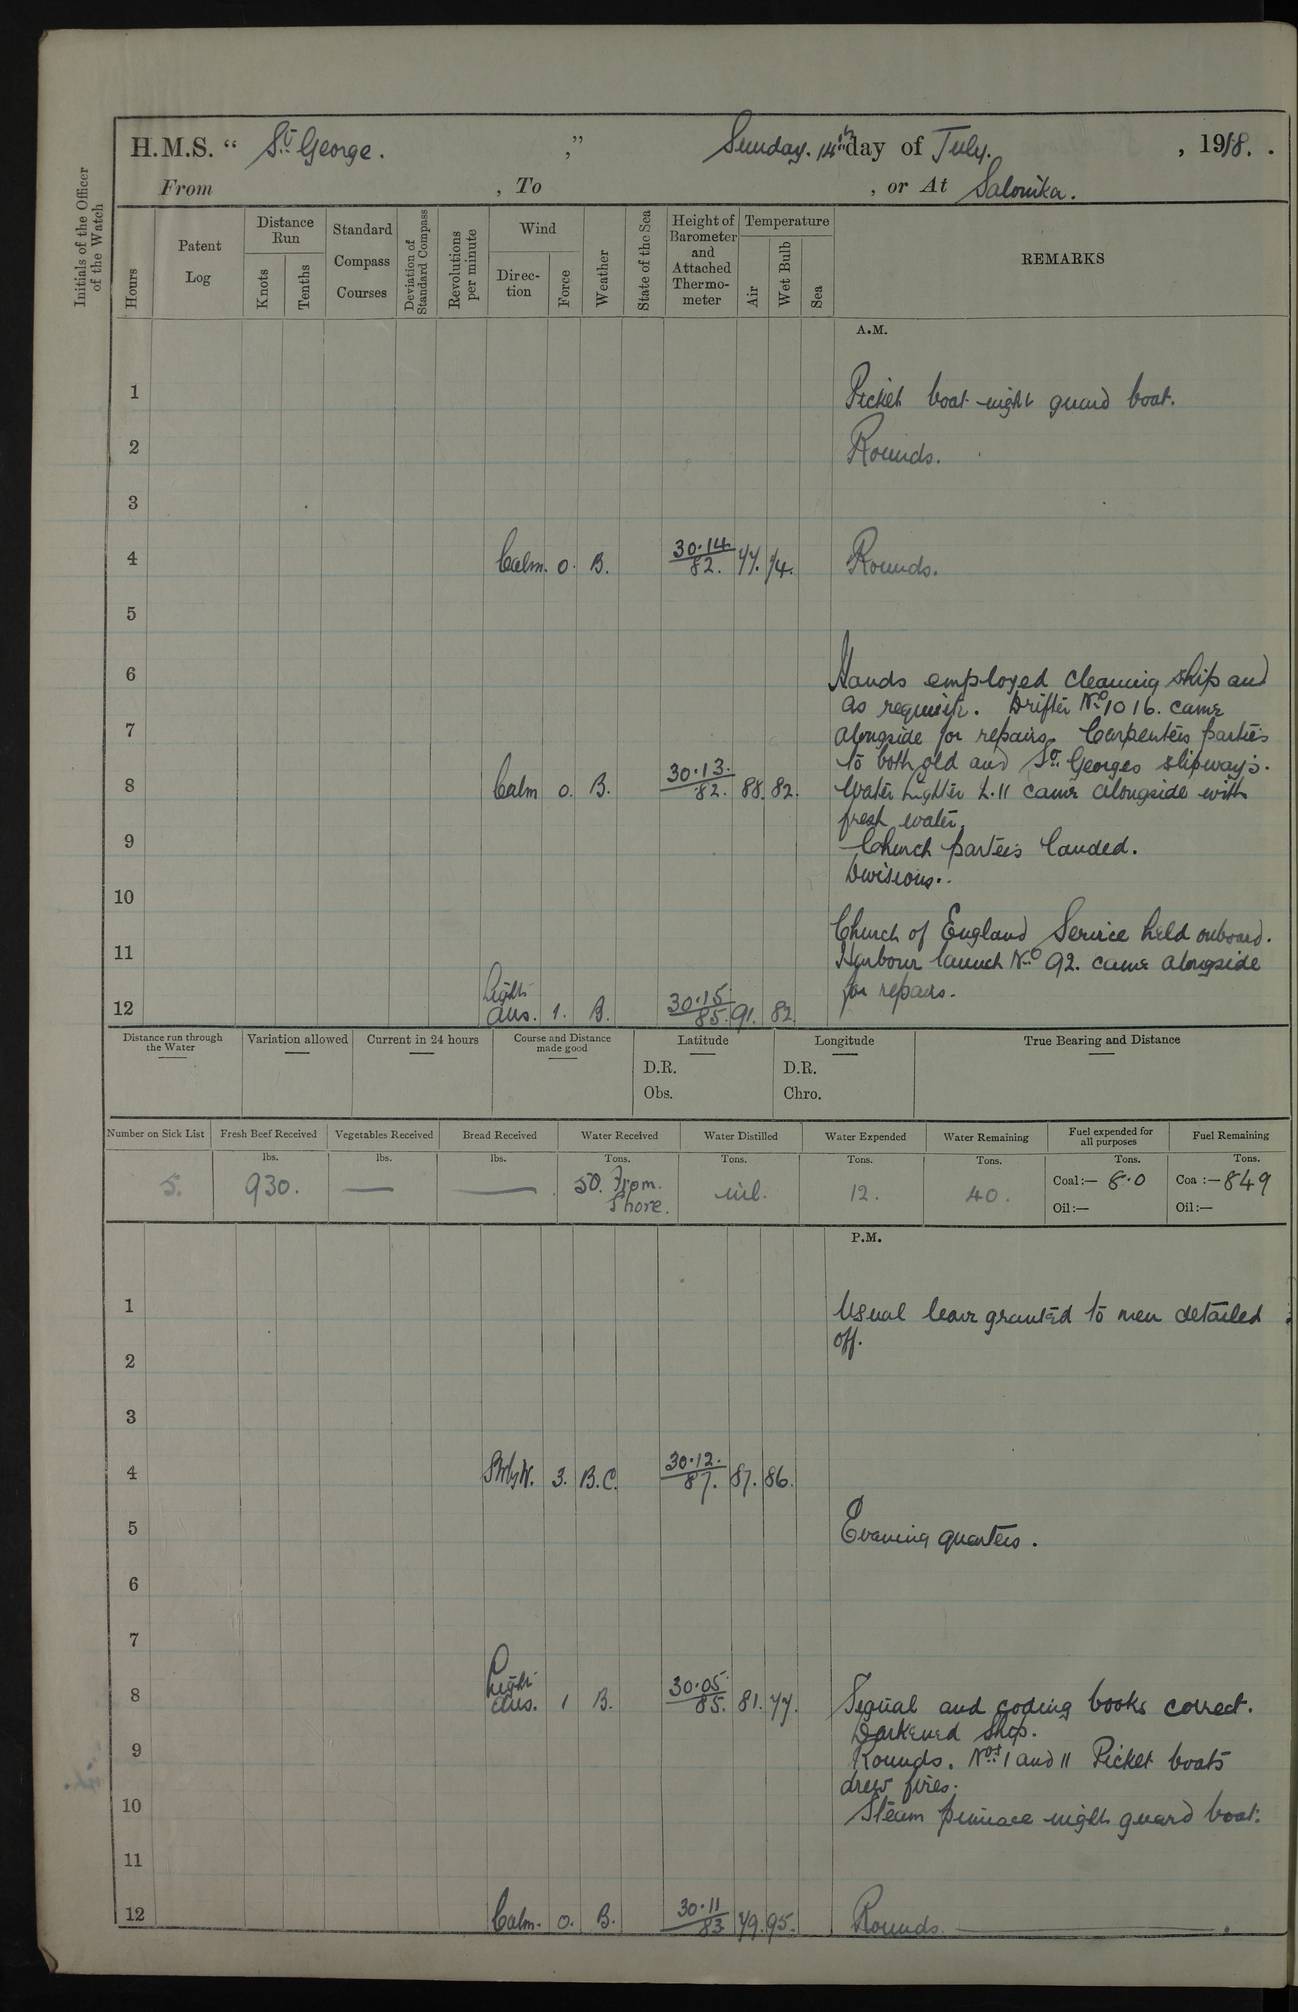 Initials of the Officer of the Watch
H.M.S. “ St. George. ,” Sunday. 14th day of July. , 1918. .
From , To , or At Salonika.
Hours
Patent Log
Distance Run
Knots
Tenths
Standard Compass Courses
Deviation of Standard Compass
Revolutions per minute
Wind
Direc-tion
Force
Weather
State of the Sea
Height of Barometer and Attached Thermo-meter
Temperature
Air
Wet Bulb
Sea
REMARKS
A.M.
1 Picket boat night guard boat.
2 Rounds.
3
4 Calm. 0. B. 30.14/82. 77. 74. Rounds.
5
6 Hands employed cleaning ship and
as requisite. Drifter No. 1016. came
7 alongside for repairs. Carpenters parties
to both old and St. Georges slipways.
8 Calm 0. B. 30.13./82. 88. 82. Water Lighter L.11 came alongside with
fresh water.
9 Church parties landed.
Divisions..
10
Church of England Service held onboard.
11 Harbour launch No. 92. came alongside
for repairs.
12 Light airs. 1. B. 30.15/85. 91. 82.
Distance run through the Water
Variation allowed
Current in 24 hours
Course and Distance made good
Latitude
D.R.
Obs.
Longitude
D.R.
Chro.
True Bearing and Distance
Number on Sick List
5.
Fresh Beef Received
lbs.
930.
Vegetables Received
lbs.
—
Bread Received
lbs.
—
Water Received
Tons.
50. From Shore.
Water Distilled
Tons.
nil.
Water Expended
Tons.
12.
Water Remaining
Tons.
40.
Fuel expended for all purposes
Tons.
Coal:— 8.0
Oil:—
Fuel Remaining
Tons.
Coa :— 849
Oil:—
P.M.
1 Usual leave granted to men detailed
off.
2
3
4 SWbyW. 3. B.C. 30.12./87. 87. 86.
5 Evening quarters.
6
7
8 Light airs. 1 B. 30.05/85. 81. 77. Signal and coding books correct.
Darkened Ship.
9 Rounds. Nos. 1 and 11 Picket boats
drew fires.
10 Steam pinnace night guard boat.
11
12 Calm. 0. B. 30.11/83 79. 95. Rounds.